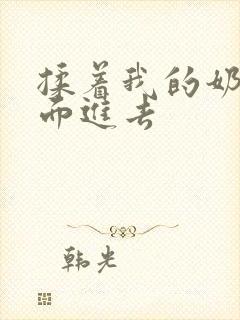 揉着我的奶
而進去
韩光